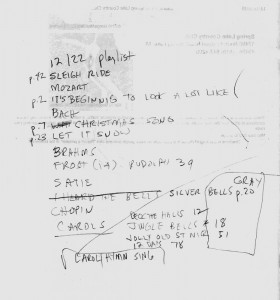 12/22 playlist
p.12 SLEIGH RIDE
MOZART
p.2 IT'S BEGINNIG TO LOOK A LOT LIKE
BACH
p.7 CHRISTMAS SONG
p.23 LET IT SNOW
BRAHMS
FROSTY (14) RUDOLPH 39
SATIE
I HEARD THE BELLS SILVER BELLS p.20
GRAY
CHOPIN
CAROLS DECK THE HALLS 12
JINGLE BELLS * 18
JOLLY OLD ST NIC 51
12 DAYS 78
CAROL HYMN SING